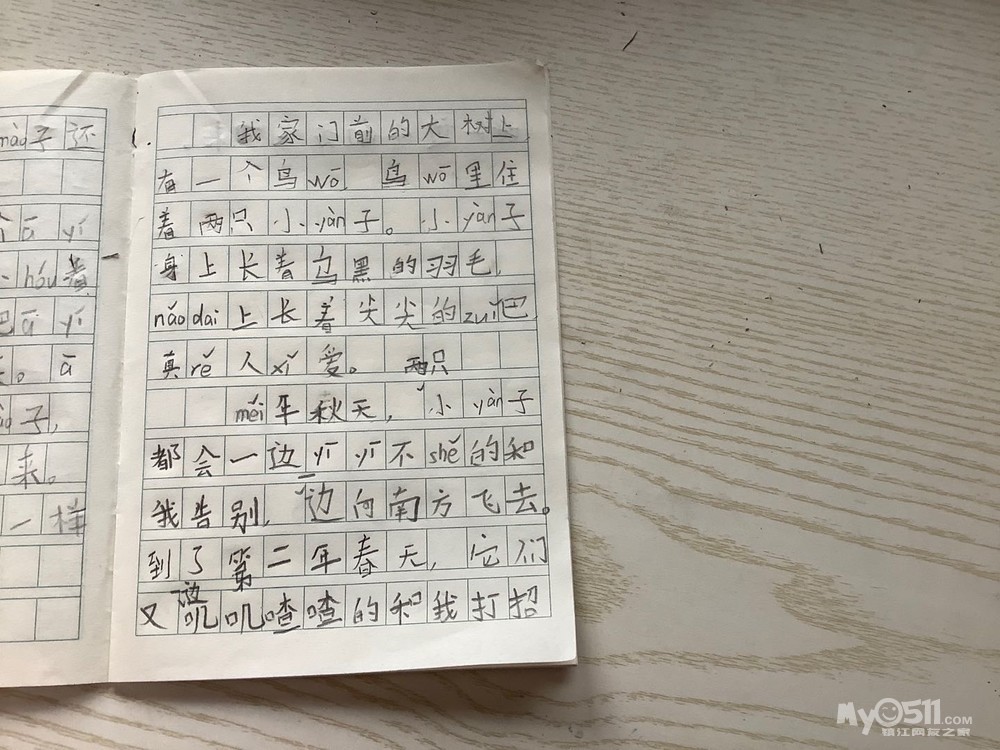 nàg子还
ā yí
hóu着
吧ā yí
。ā
子，
来。
一样
我家门前的大树上
有一个鸟wō 鸟wō里住
着两只小yàn子。小yàn子
身上长着乌黑的羽毛，
nǎodai上长着尖尖的zuǐ巴，
真rě人xǐ爱。
两只
měi年秋天，小yàn子
都会一边yī yī不shě的和
我告别，边向南方飞去。
到了第二年春天，它们
边
又叽叽喳喳的和我打招
My0511.COM
镇江网友之家